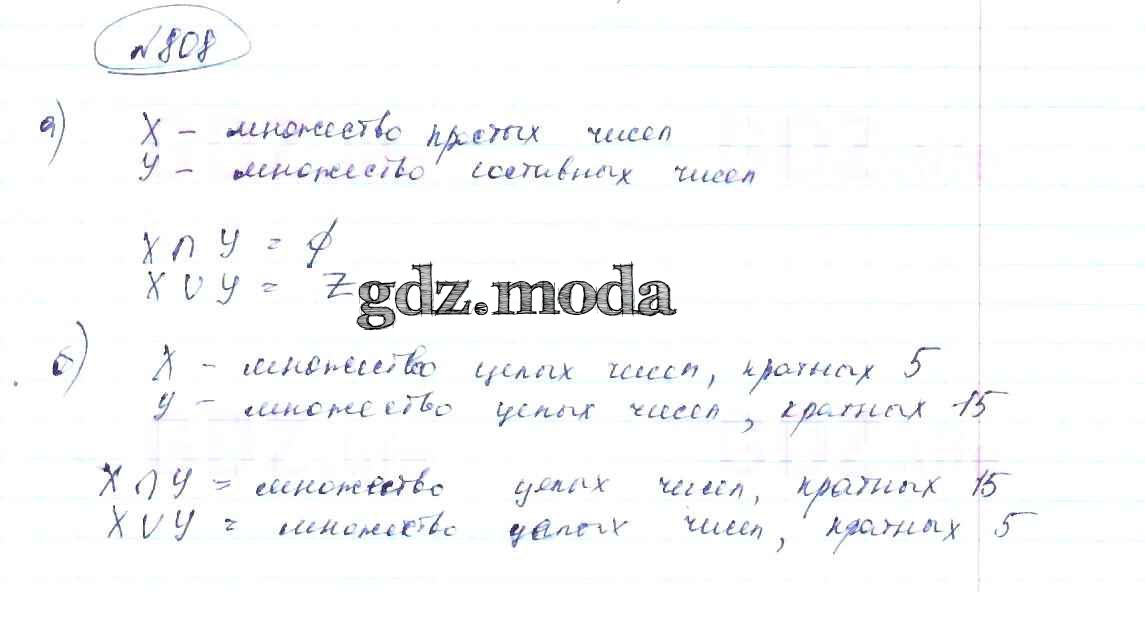 №808
а) X – множество простых чисел
У – множество составных чисел
X ∩ У = ∅
X ∪ У = Z
gdz.moda
б) X – множество целых чисел, кратных 5
У – множество целых чисел, кратных 15
X ∩ У = множество целых чисел, кратных 15
X ∪ У = множество целых чисел, кратных 5